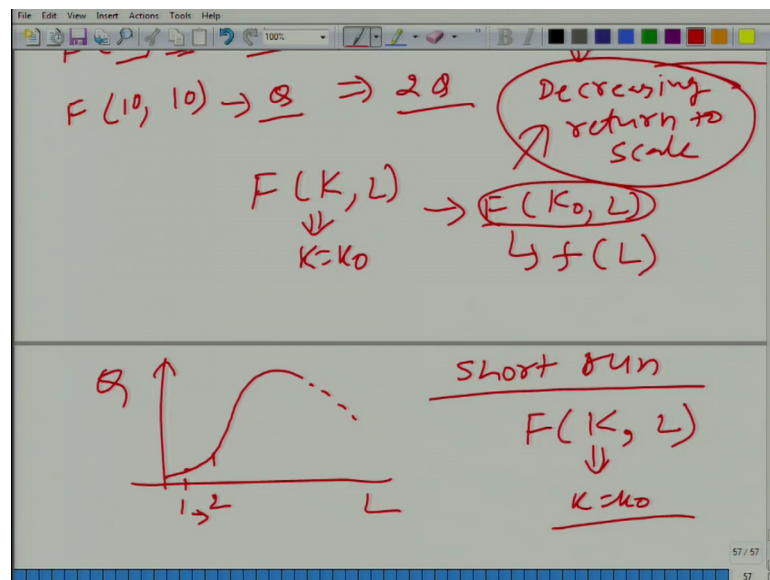 File Edit View Insert Actions Tools Help
100%
B I
F (10, 10) → Q ⇒ 2Q
Decreasing
return to
scale
F (K, L) → F (K0, L)
K=K0
↳ f (L)
Q
1→2
L
Short run
F (K, L)
K=K0
57 / 57
57